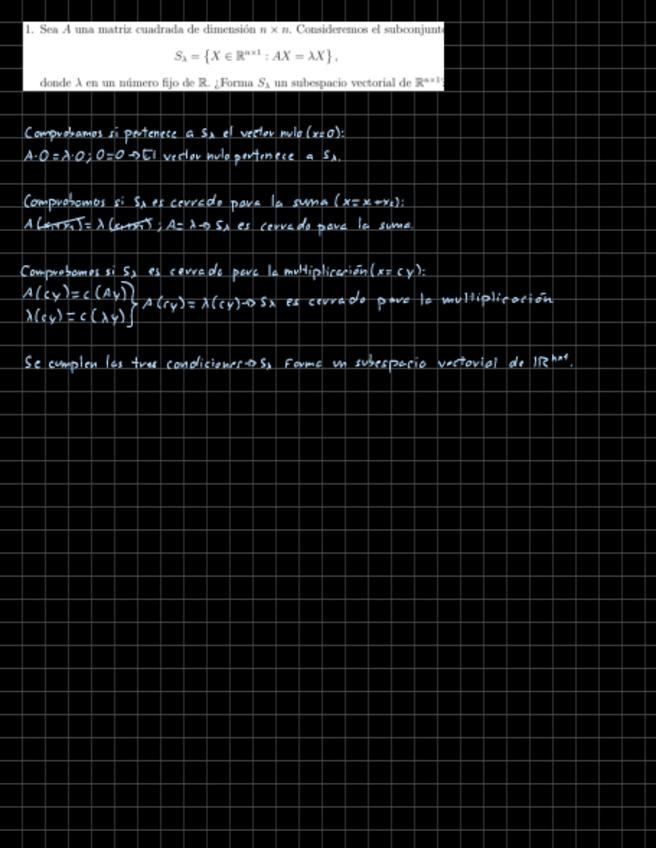 1. Sea A una matriz cuadrada de dimensión n × n. Consideremos el subconjunt
Sλ = {X ∈ ℝⁿˣ¹ : AX = λX},
donde λ en un número fijo de ℝ. ¿Forma Sλ un subespacio vectorial de ℝⁿˣ¹?
Comprobamos si pertenece a Sλ el vector nulo (x=0):
A·0=λ·0; 0=0 → El vector nulo pertenece a Sλ.
Comprobamos si Sλ es cerrado para la suma (x=x₁+x₂):
A(x₁+x₂)=λ(x₁+x₂); A=λ→ Sλ es cerrado para la suma
Comprobamos si Sλ es cerrado para la multiplicación (x=cy):
A(cy)=c(Ay)
λ(cy)=c(λy)
} A(cy)=λ(cy)→ Sλ es cerrado para la multiplicación
Se cumplen las tres condiciones → Sλ Forma un subespacio vectorial de ℝⁿˣ¹.